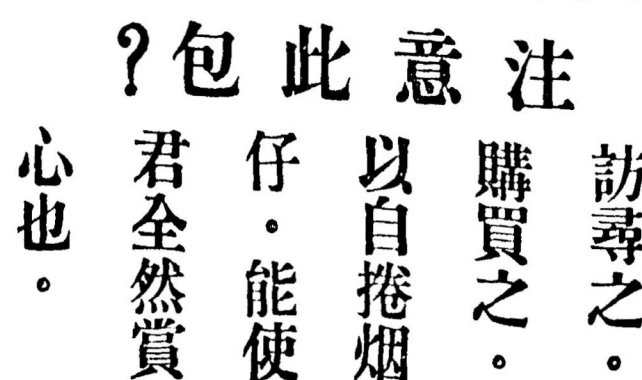 注意此包?
訪尋之。
購買之。
以自捲烟
仔。能使
君全然賞
心也。